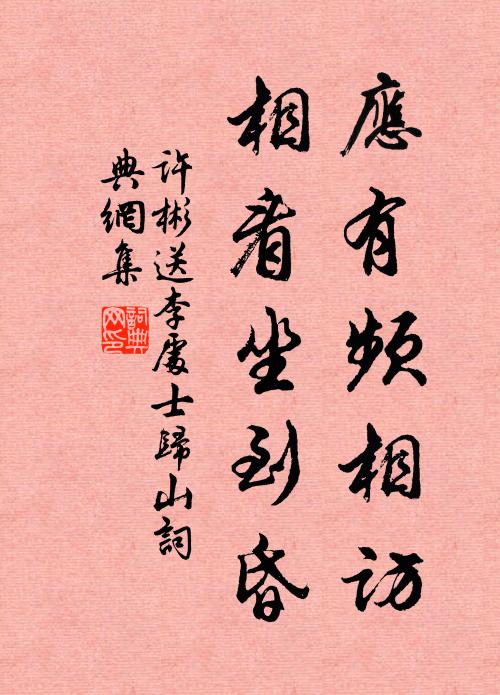 應有頻相訪
相看坐到昏
許彬送李處士歸山詞
典網集
詞典網印